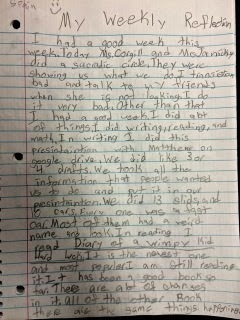 My Weekly Reflection
I had a good week this
week. Today Ms. Corgill and Ms.
did a socratic circle. They were
showing us what we do. I transition
bad and talk to my friends
when she is not looking. I do
it very bad. Other than that
I had a good week. I did a bt
of things. I did writing, reading, and
math. In writing I did this
presintaition with Matthew on
google drive. We did like 3 or
4 drafts. We took all the
information that people wanted
us to do and put it in our
presintaintion. We did 13 slids, and
10 cars. Every one was a fast
car. Most of them had a weird
name and look. In reading I
read Diary of a wimpy Kid
Hard Luck. It is the newest one
and most popular. I am still reading
it. It has been a good book so
far. There are a bt of changes
in it, all of the other Book
there are the same things happening